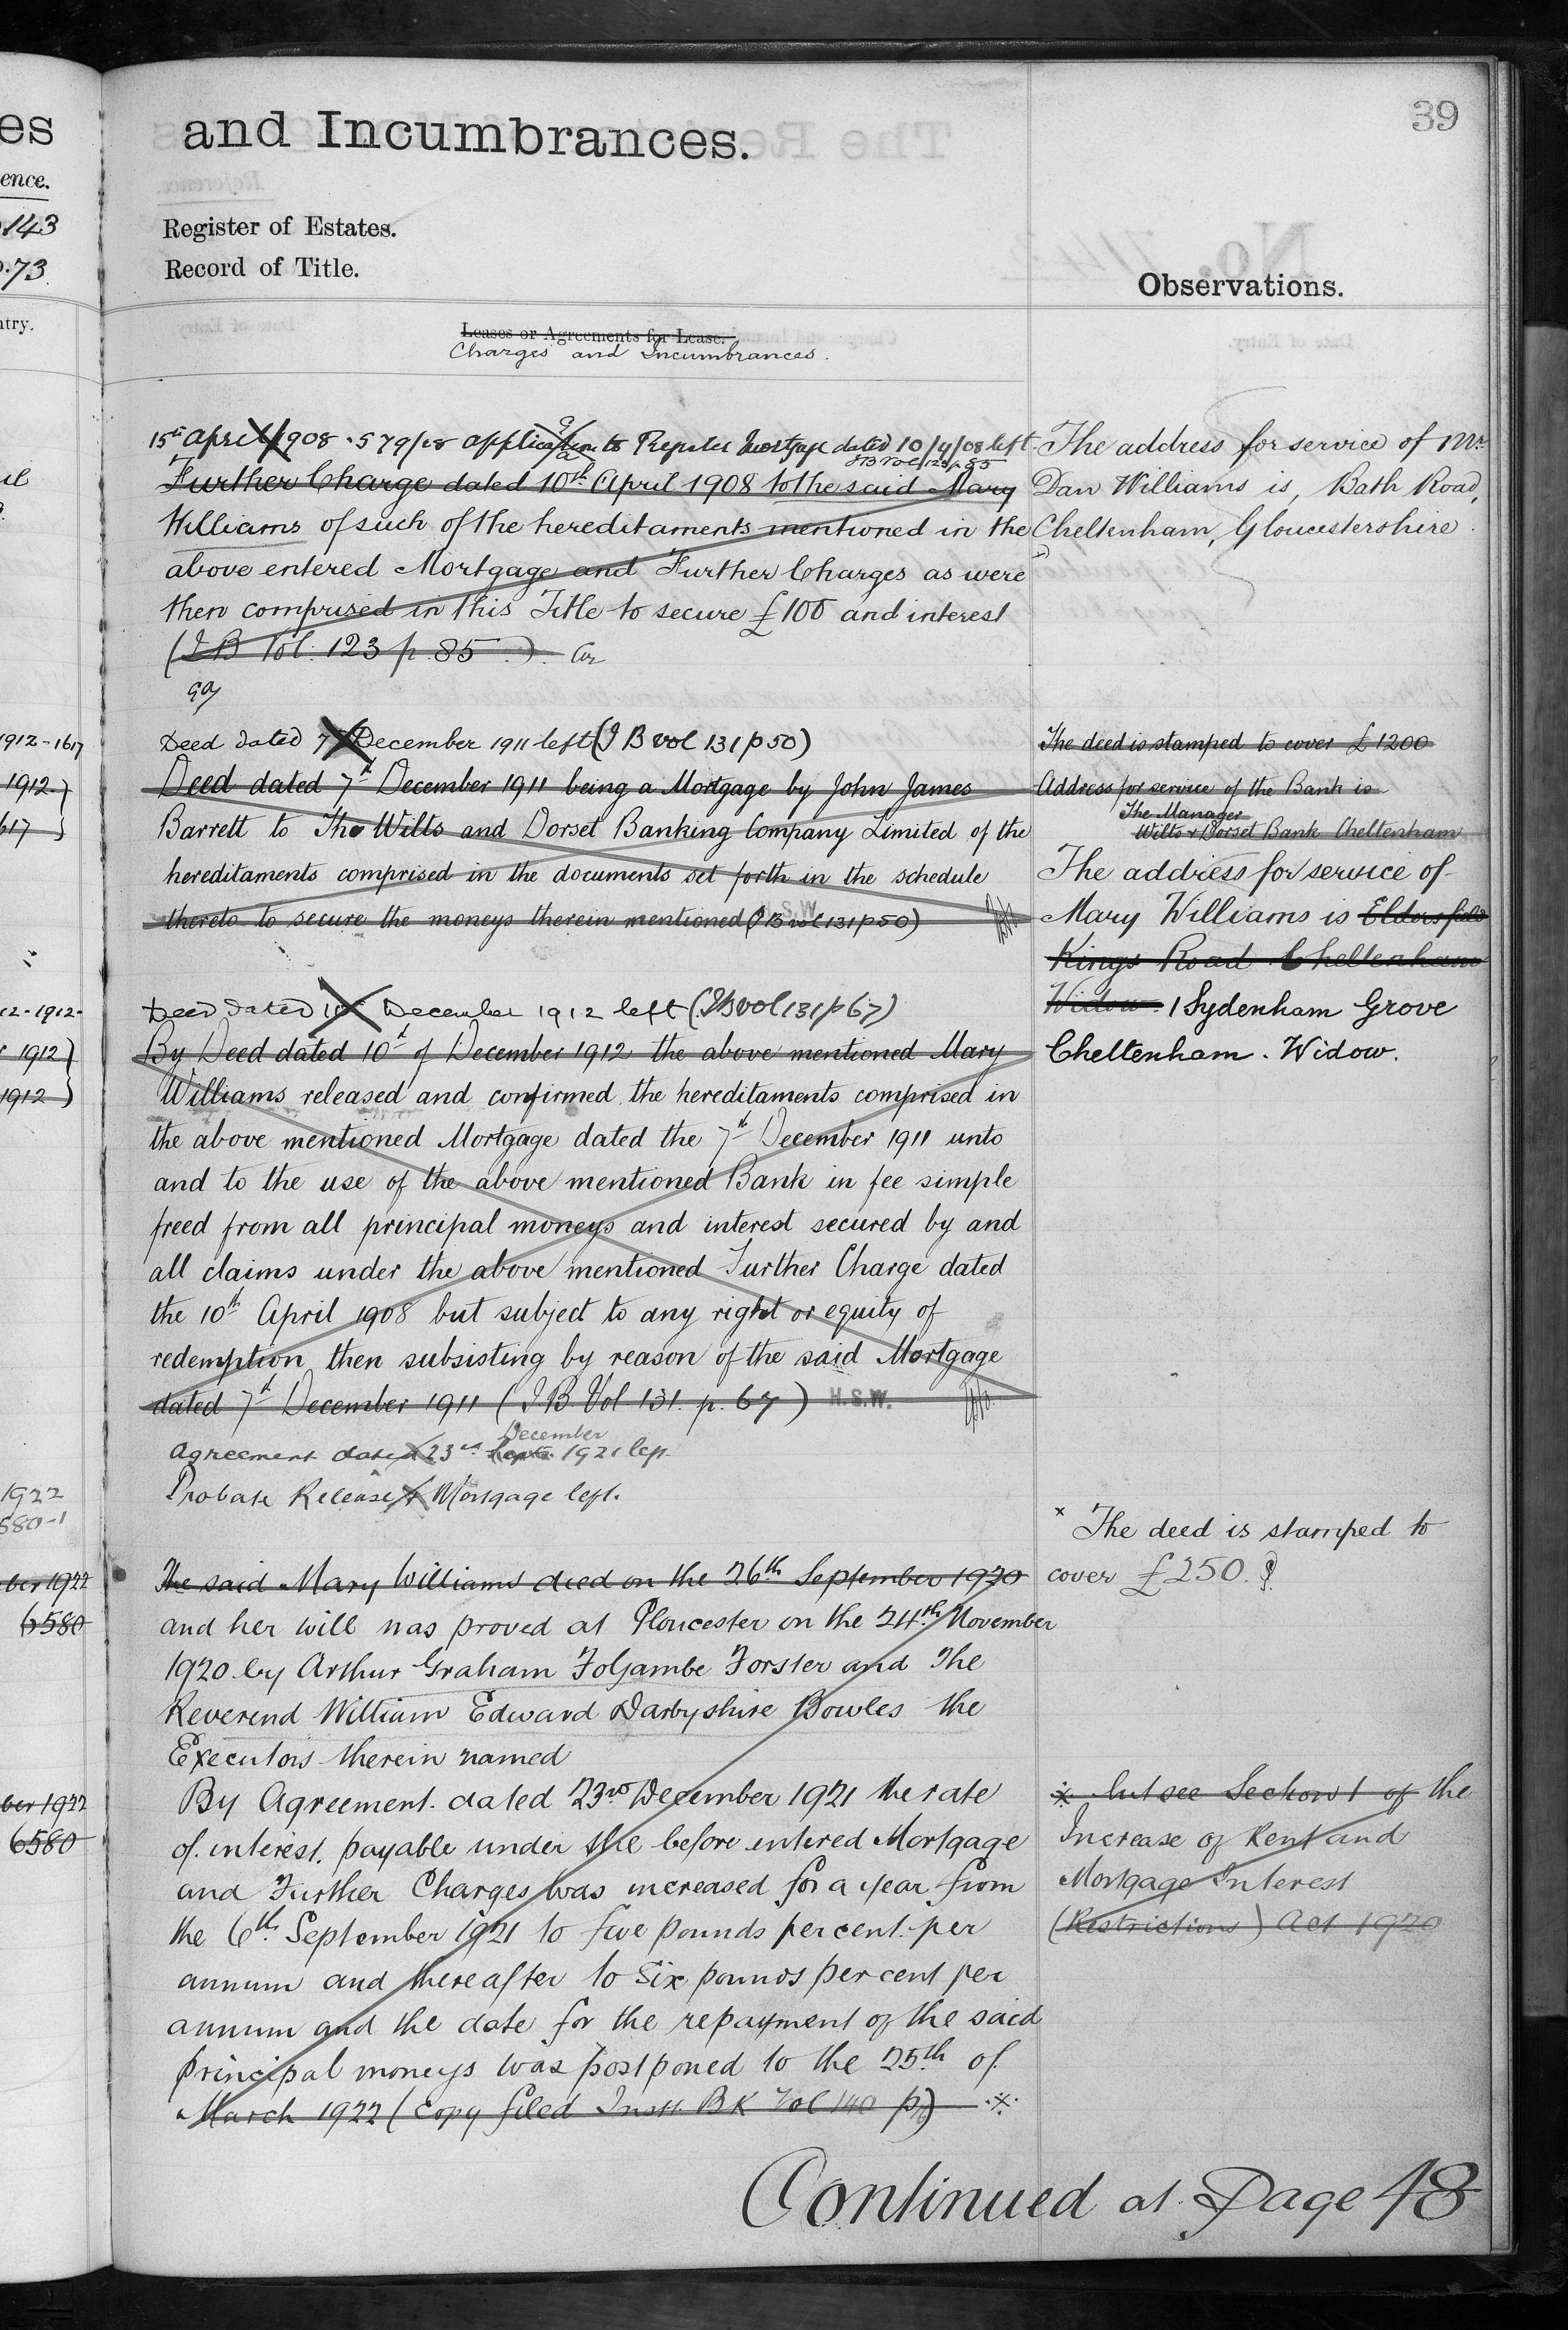 es
ence.
143
.73
ntry.
1912-1617
1912
617
12-1912
1912
1912
1922
580-1
ber 1922
6580
ber 1922
6580
39
and Incumbrances.
Register of Estates.
Record of Title.
Leases or Agreements for Lease.
Charges and Incumbrances.
15th April 1908 . 579/08 application to Register Mortgage dated 10/4/08 left
Further Charge dated 10th April 1908 to the said Mary
Williams of such of the hereditaments mentioned in the
above entered Mortgage and Further Charges as were
then comprised in this Title to secure £100 and interest
(I B Vol. 123 p. 85)
Deed dated 7 December 1911 left (I B vol 131 p 50)
Deed dated 7th December 1911 being a Mortgage by John James
Barrett to The Wilts and Dorset Banking Company Limited of the
hereditaments comprised in the documents set forth in the schedule
thereto to secure the moneys therein mentioned (I B vol 131 p 50)
H.S.W.
Deed dated 10 December 1912 left (I B vol 131 p 67)
By Deed dated 10th of December 1912 the above mentioned Mary
Williams released and confirmed the hereditaments comprised in
the above mentioned Mortgage dated the 7th December 1911 unto
and to the use of the above mentioned Bank in fee simple
freed from all principal moneys and interest secured by and
all claims under the above mentioned Further Charge dated
the 10th April 1908 but subject to any right or equity of
redemption then subsisting by reason of the said Mortgage
dated 7th December 1911 (I. B. Vol 131. p. 67) H.S.W.
December
Agreement dated 23rd Septr 1921 left
Probate Release & Mortgage left.
The said Mary Williams died on the 26th September 1920
and her will was proved at Gloucester on the 24th November
1920 by Arthur Graham Foljambe Forster and The
Reverend William Edward Darbyshire Bowles the
Executors therein named
By Agreement dated 23rd December 1921 the rate
of interest payable under the before entered Mortgage
and Further Charges was increased for a year from
the 6th September 1921 to five pounds per cent. per
annum and thereafter to six pounds per cent per
annum and the date for the repayment of the said
principal moneys was postponed to the 25th of
March 1922 (Copy filed Instt. Bk Vol 140 p)
Continued at Page 48
Observations.
The address for service of Mr.
Dan Williams is, Bath Road,
Cheltenham, Gloucestershire.
The deed is stamped to cover £1200
Address for service of the Bank is
The Manager
Wilts & Dorset Bank Cheltenham
The address for service of
Mary Williams is Eldersfield
Kings Road Cheltenham
Widow 1 Sydenham Grove
Cheltenham. Widow.
x The deed is stamped to
cover £250.
* but see Section 1 of the
Increase of Rent and
Mortgage Interest
(Restrictions) Act 1920